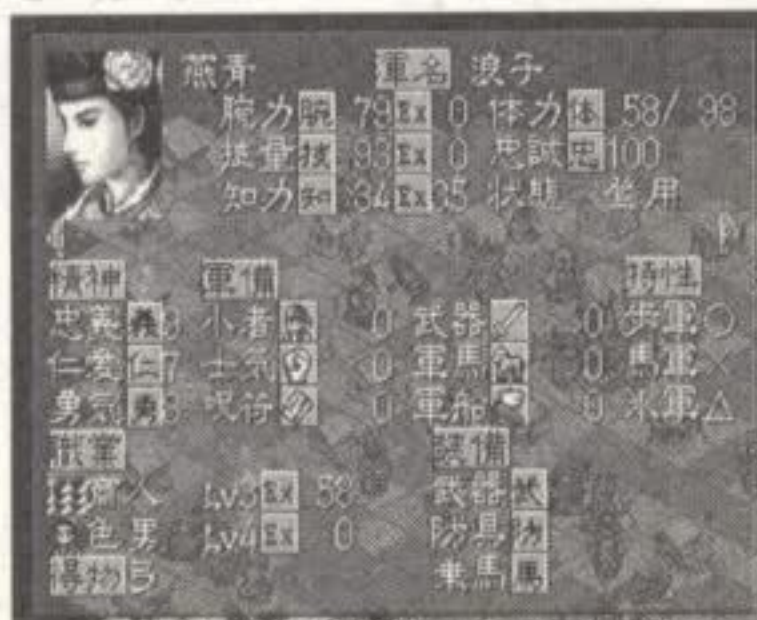 燕青 渾名 浪子
腕力 腕 79 Ex 0 体力 体 58/ 98
技量 技 93 Ex 0 忠誠 忠 100
知力 知 84 Ex 35 状態 登用
精神 軍備 特性
忠義 義 8 小者 0 武器 0 歩軍 ○
仁愛 仁 7 士気 0 軍馬 0 馬軍 ×
勇気 勇 8 呪符 0 軍船 0 水軍 △
職業 装備
Lv3 Ex 58 武器 武
色男 Lv4 Ex 0 防具 防
得物 弓 乗馬 馬